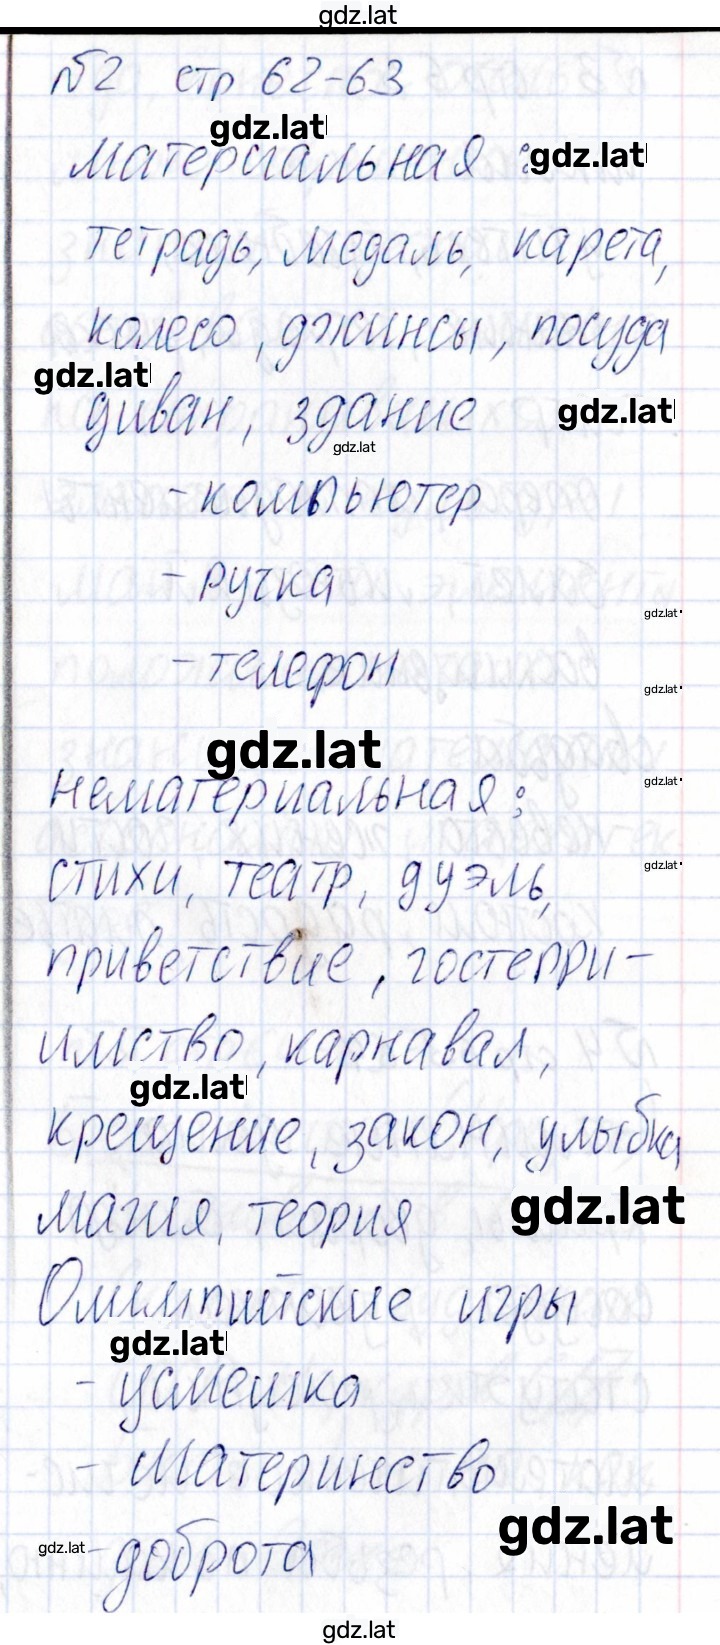 gdz.lat
№2 стр 62-63
gdz.lat
материальная :
gdz.lat
тетрадь, медаль, карета,
колесо, джинсы, посуда
gdz.lat
диван, здание
gdz.lat
gdz.lat
- компьютер
- ручка
gdz.lat
- телефон
gdz.lat
gdz.lat
нематериальная:
gdz.lat
стихи, театр, дуэль,
gdz.lat
приветствие, гостепри-
имство, карнавал,
gdz.lat
крещение, закон, улыбка
магия, теория
gdz.lat
Олимпийские игры
gdz.lat
- усмешка
- материнство
gdz.lat
gdz.lat
- доброта
gdz.lat